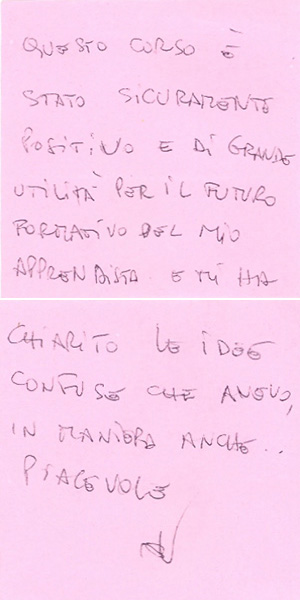 QUESTO CORSO È
STATO SICURAMENTE
POSITIVO E DI GRANDE
UTILITÀ PER IL FUTURO
FORMATIVO DEL MIO
APPRENDISTA E MI HA
CHIARITO LE IDEE
CONFUSE CHE AVEVO,
IN MANIERA ANCHE..
PIACEVOLE